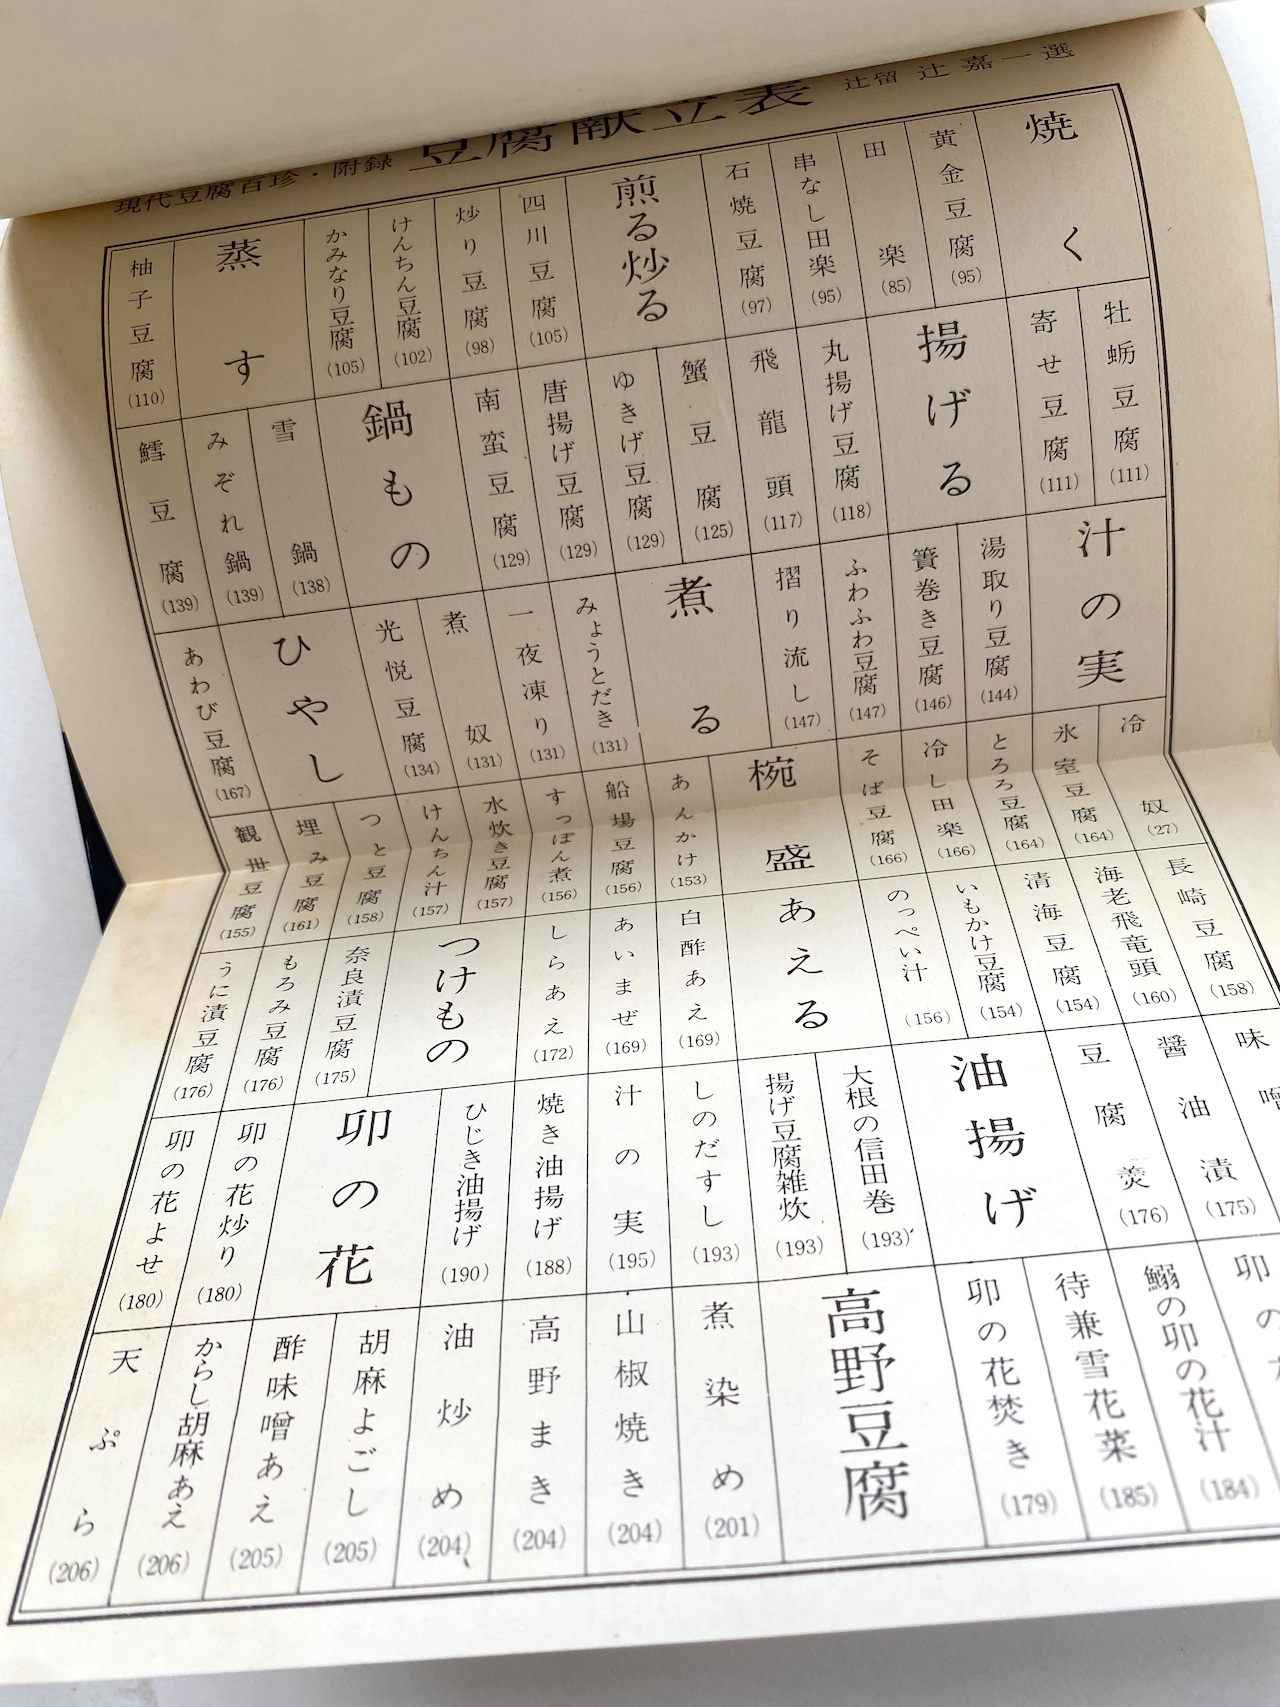 現代豆腐百珍・附録
豆腐献立表
辻留 辻 嘉一選
焼く
黄金豆腐(95)
田楽(85)
串なし田楽(95)
石焼豆腐(97)
煎る炒る
四川豆腐(105)
炒り豆腐(98)
けんちん豆腐(102)
かみなり豆腐(105)
蒸す
柚子豆腐(110)
牡蛎豆腐(111)
寄せ豆腐(111)
揚げる
丸揚げ豆腐(118)
飛龍頭(117)
蟹豆腐(125)
ゆきげ豆腐(129)
唐揚げ豆腐(129)
南蛮豆腐(129)
鍋もの
雪鍋(138)
みぞれ鍋(139)
鱈豆腐(139)
汁の実
湯取り豆腐(144)
簀巻き豆腐(146)
ふわふわ豆腐(147)
摺り流し(147)
煮る
みょうとだき(131)
一夜凍り(131)
煮奴(131)
光悦豆腐(134)
ひやし
あわび豆腐(167)
冷奴(27)
氷室豆腐(164)
とろろ豆腐(164)
冷し田楽(166)
そば豆腐(166)
椀盛
あんかけ(153)
船場豆腐(156)
すっぽん煮(156)
水炊き豆腐(157)
けんちん汁(157)
つと豆腐(158)
埋み豆腐(161)
観世豆腐(155)
長崎豆腐(158)
海老飛竜頭(160)
清海豆腐(154)
いもかけ豆腐(154)
のっぺい汁(156)
あえる
白酢あえ(169)
あいまぜ(169)
しらあえ(172)
つけもの
奈良漬豆腐(175)
もろみ豆腐(176)
うに漬豆腐(176)
味噌
醤油漬(175)
豆腐羹(176)
油揚げ
大根の信田巻(193)
揚げ豆腐雑炊(193)
しのだすし(193)
汁の実(195)
焼き油揚げ(188)
ひじき油揚げ(190)
卯の花
卯の花炒り(180)
卯の花よせ(180)
卯の
鰯の卯の花汁(184)
待兼雪花菜(185)
卯の花焚き(179)
高野豆腐
煮染め(201)
山椒焼き(204)
高野まき(204)
油炒め(204)
胡麻よごし(205)
酢味噌あえ(205)
からし胡麻あえ(206)
天ぷら(206)